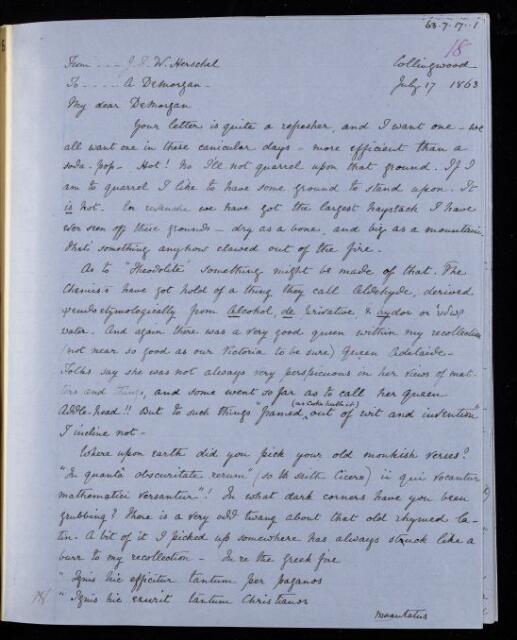 63.7.17.1
18
From --- J. F. W. Herschel Collingwood
To ---- A DeMorgan. July 17 1863
My dear DeMorgan
Your letter is quite a refresher, and I want one - we
all want one in these canicular days - more efficient than a
soda-pop - Hot! no I'll not quarrel upon that ground. If I
am to quarrel I like to have some ground to stand upon. It
is hot. En revanche we have got the largest haystack I have
ever seen off these grounds - dry as a bone, and big as a mountain.
that's something anyhow clawed out of the fire.
As to "Theodolite" something might be made of that. The
Chemists have got hold of a thing they call Aldehyde, derived
pseudo etymologically from Alcohol, de privative, & aydor or ὕδωρ
water. And again there was a very good queen within my recollection
(not near so good as our Victoria to be sure) Queen Adelaide -
Folks say she was not always very perspicuous in her views of mat-
ters and things, and some went so far as to call her queen
Addle-head!! But to such things "framed (as Coke hath it) out of wit and invention"
I incline not -
Where upon earth did you pick your old monkish verses?
"In quantâ obscuritate rerum" (so th saith Cicero) ii qui vocantur
mathematici versantur"! In what dark corners have you been
grubbing? There is a very odd twang about that old rhymed la-
tin. A bit of it I picked up somewhere has always stuck like a
burr to my recollection - In re the Greek fire
" Ignis hic efficitur tantum per paganos
" Ignis hic exurit tantum Christianos